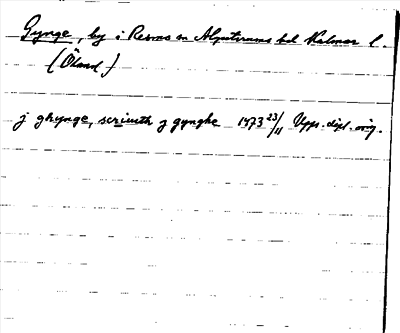 Gynge, by i Resmo sn Algutsrums hd Kalmar l.
(Öland)
j ghynge, scriuith j gynghe 1373 23/11 Upps. dipl. orig.